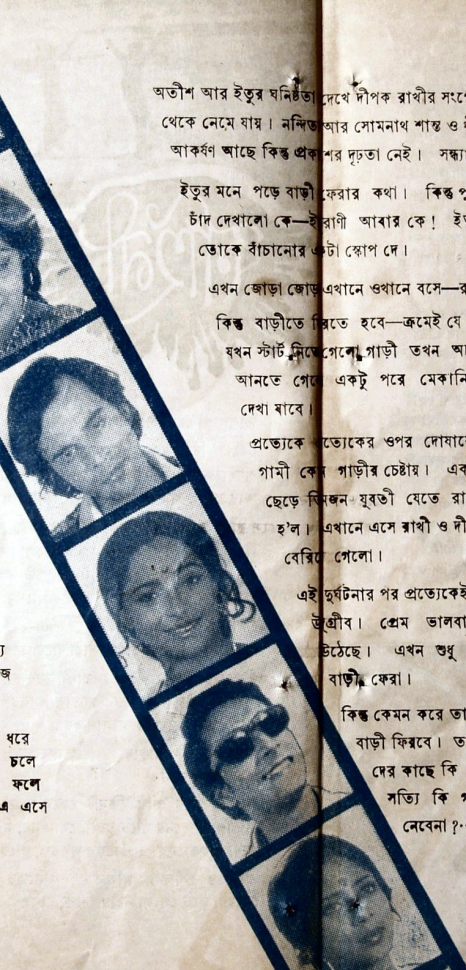 অতীশ আর ইতুর ঘনিষ্ঠতা দেখে দীপক রাখীর
থেকে নেমে যায়। নন্দিতা আর সোমনাথ শান্ত ও
আকর্ষণ আছে কিন্তু প্রকাশের দৃঢ়তা নেই।
ইতুর মনে পড়ে বাড়ী ফেরার কথা। কিন্তু
চাঁদ দেখালো কে—ইরাণী আবার কে!
তোকে বাঁচানোর একটা স্কোপ দে।
এখন জোড়া জোড়া এখানে ওখানে বসে—
কিন্তু বাড়ীতে ফিরতে হবে—ক্রমেই যে
যখন স্টার্ট নিতে গেলো গাড়ী তখন
আনতে গেলে একটু পরে
দেখা যাবে।
প্রত্যেকে প্রত্যেকের ওপর
গামী কোন গাড়ীর চেষ্টায়।
ছেড়ে তিনজন যুবতী যেতে
হ'ল। এখানে এসে রাখী ও
বেরিয়ে গেলো।
এই দুর্ঘটনার পর প্রত্যেকেই
উদগ্রীব। প্রেম
উঠেছে। এখন শুধু
বাড়ী ফেরা।
কিন্তু কেমন করে
বাড়ী ফিরবে।
দের কাছে কি
সত্যি কি
নেবেনা?
ধরে
চলে
ফলে
এসে